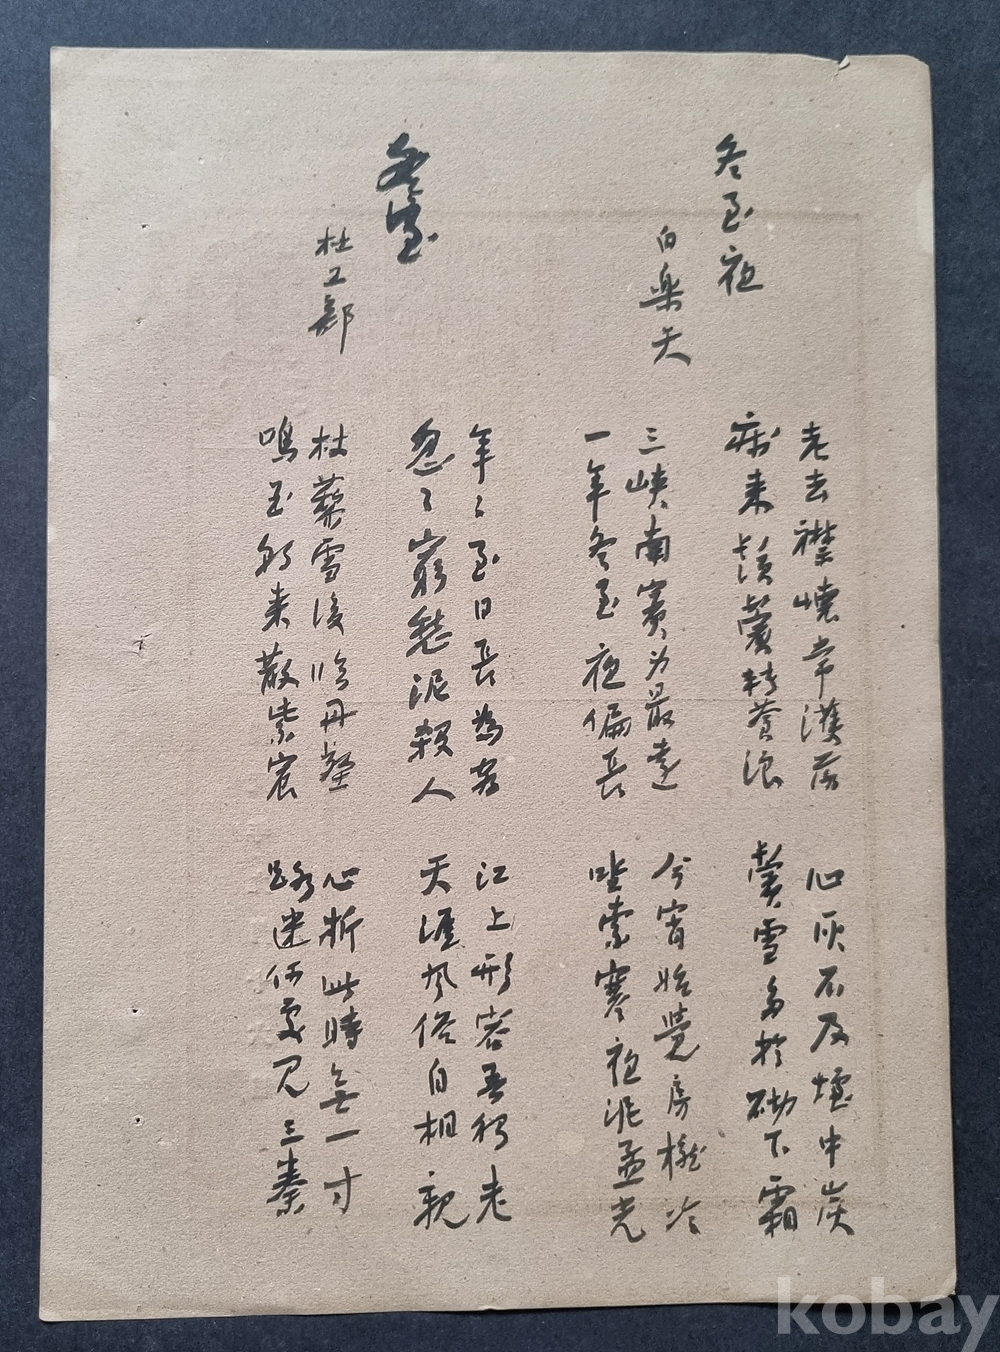 冬至夜
白樂天
老去襟懷常濩落
病來鬚鬢轉蒼浪
心灰不及爐中炭
鬢雪多於砌下霜
三峽南賓为最遠
一年冬至夜偏長
今宵始覺房櫳冷
坐索寒泥孟光
冬至
杜工部
年々至日長為客
忽々窮愁泥殺人
江上形容吾独老
天涯風俗自相親
杖藜雪後臨丹壑
鳴玉朝来散紫宸
心折此時無一寸
路迷何處見三秦
kobay